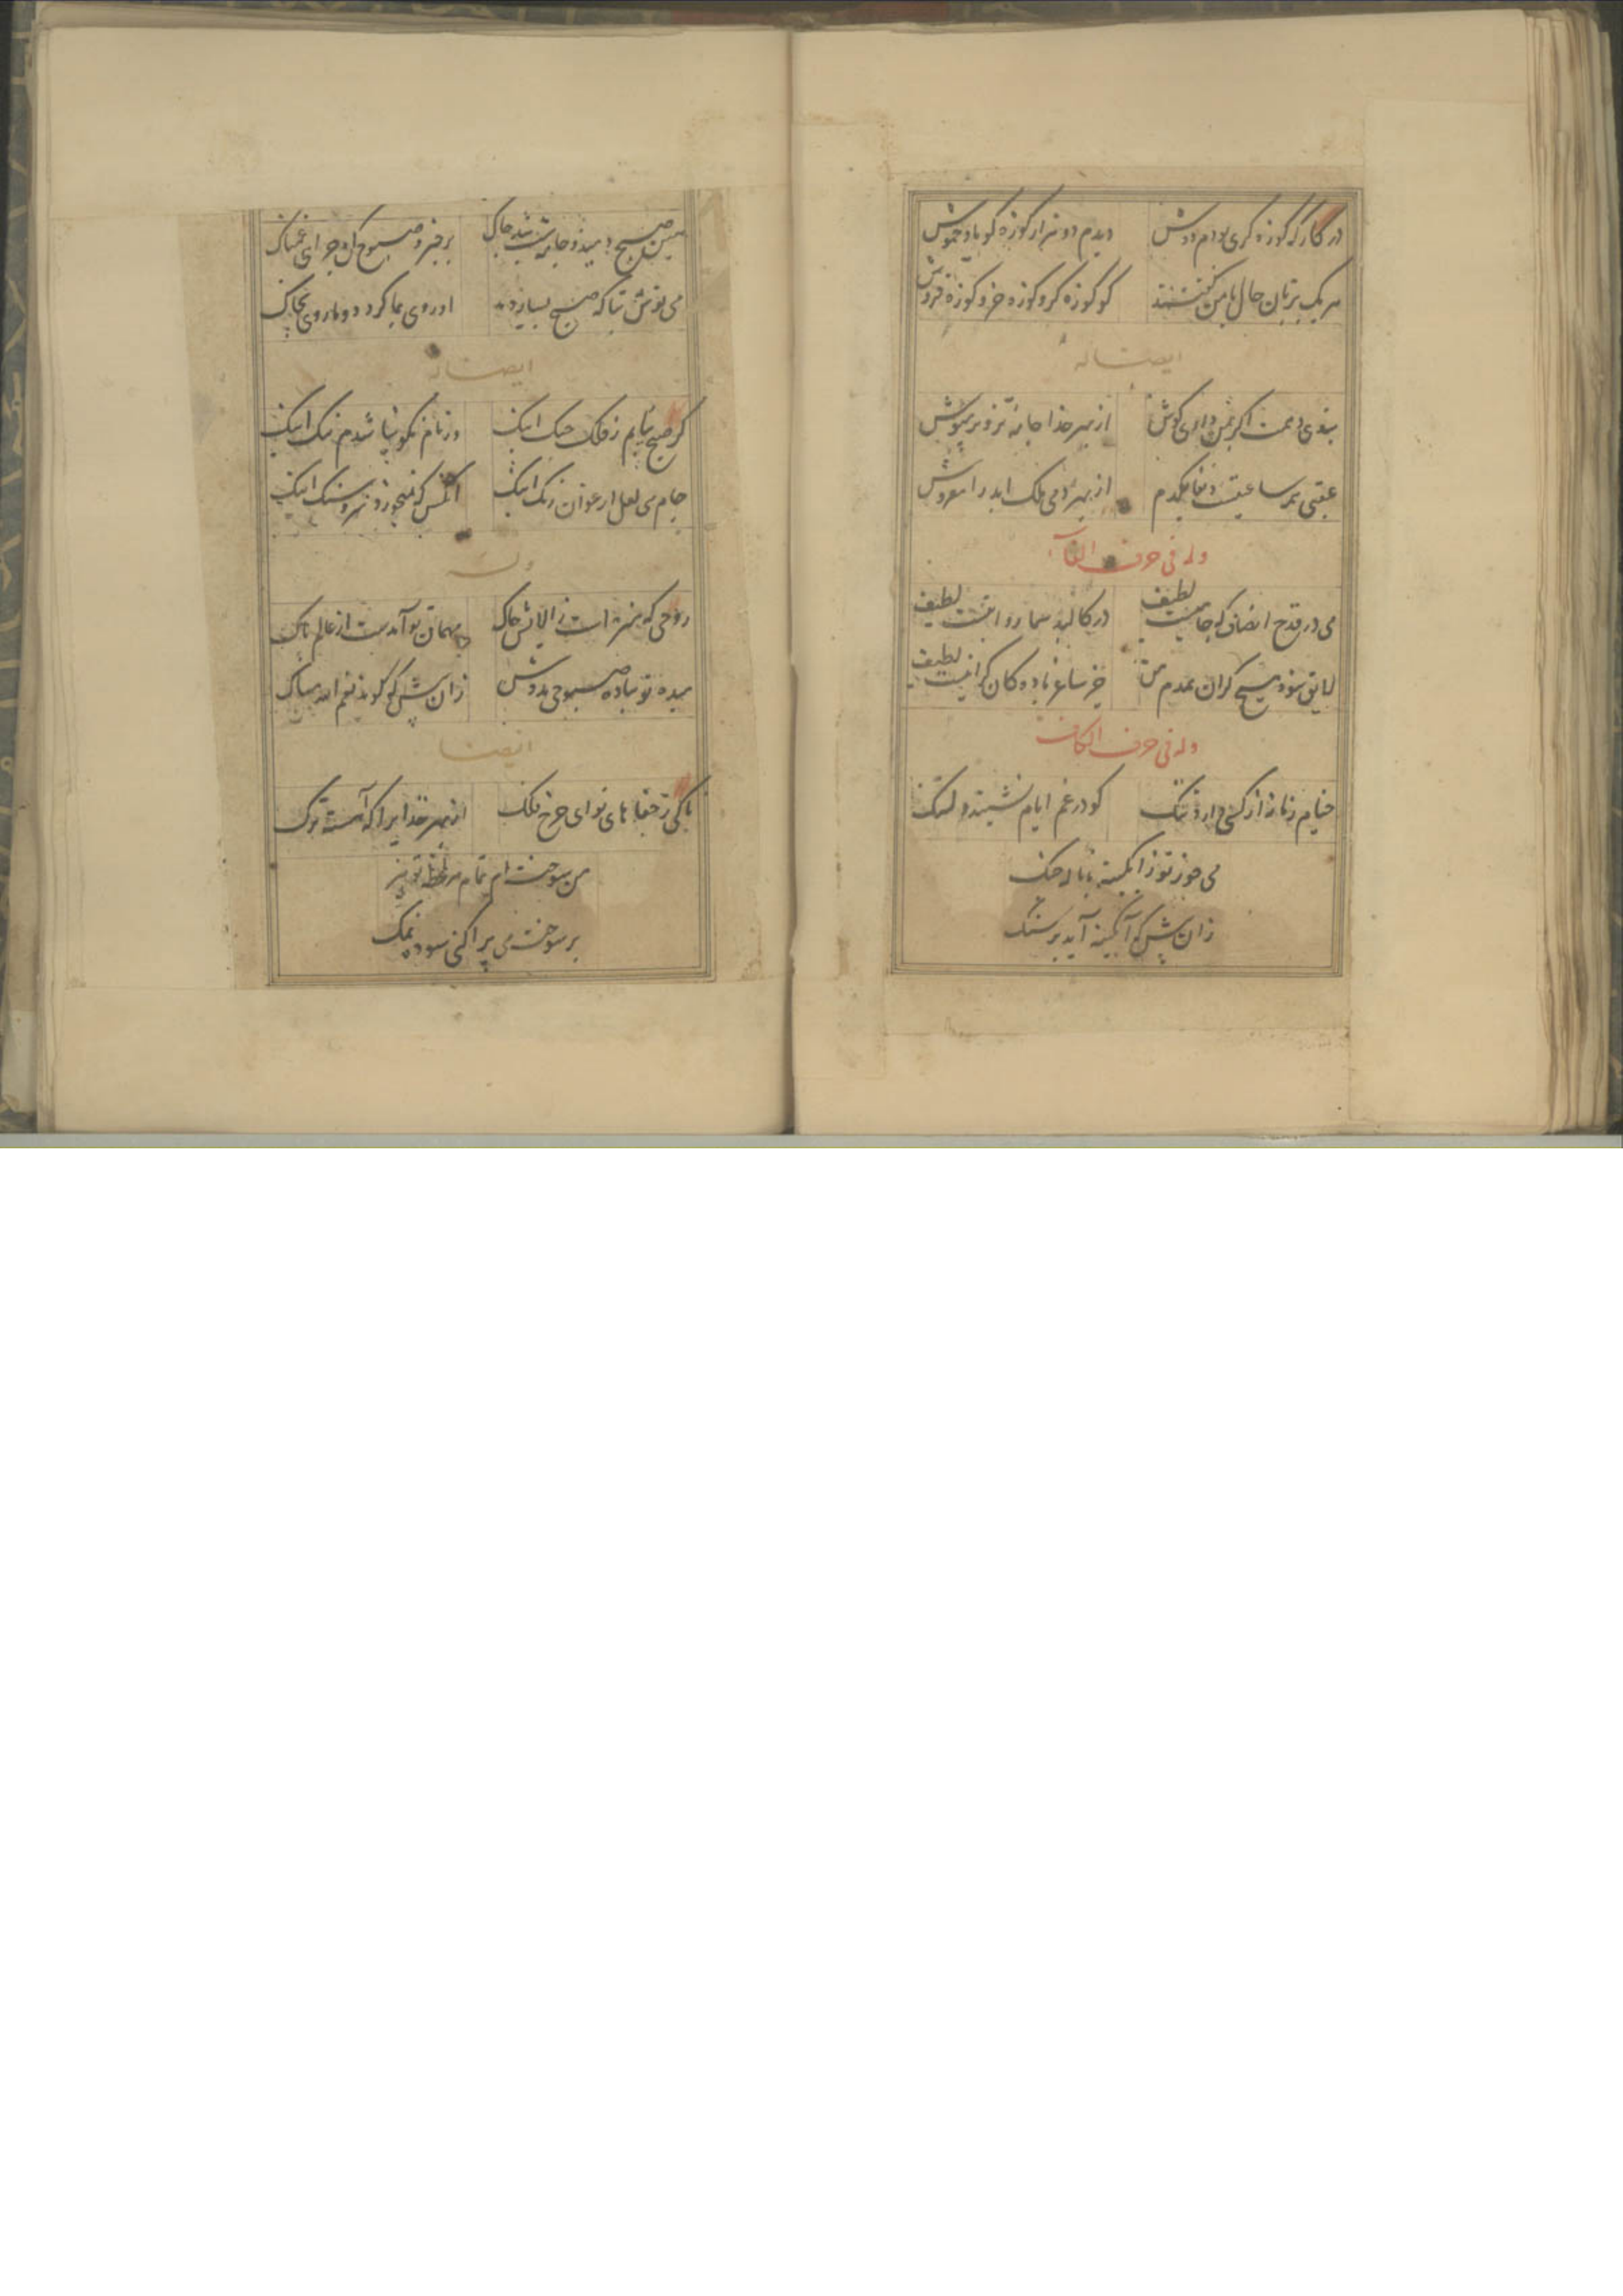 در کارگه کوزه گری بودم دوش
دیدم دو هزار کوزه گویا و خموش
هر یک بزبان حال با من گفتند
کو کوزه گر و کوزه خر و کوزه فروش
ایضا له
پندی دهمت اگر بمن داری گوش
از بهر خدا جامه تزویر مپوش
عقبی همه ساعتیست و دنیا یکدم
از بهر دمی ملک ابد را مفروش
وله فی حرف الفا
می در قدح انصاف که جانیست لطیف
در کالبد روانیست لطیف
لایق نبود هیچ گران همدم من
جز ساغر باده کان گرانیست لطیف
وله فی حرف الکاف
خیام زمانه از کسی دارد ننگ
کو در غم ایام نشیند دلتنگ
می خور تو در آبگینه با ناله چنگ
زان پیش که آبگینه آید بر سنگ
صبح دمید و جامه شب شد چاک
برخیز و صبوح کن چرای غمناک
می نوش بتا که صبح بسیار دمد
او روی بما کرده و ما روی بخاک
ایضا له
گر صلح نیابم ز فلک جنگ اینک
ور نام نکو نباشدم ننگ اینک
جام می لعل ارغوان رنگ اینک
آنکس که نمیخورد سر و سنگ اینک
وله
روحی که منزه است ز آلایش خاک
مهمان تو آمدست از عالم پاک
میده تو بباده صبوحی مددش
زان پیش که گوید انعم الله مساک
ایضا
تا کی ز جفاهای تو ای چرخ فلک
از بهر خدایرا که آهسته ترک
من سوخته ام تمام هر لحظه تو نیز
بر سوخته می پراکنی سوده نمک